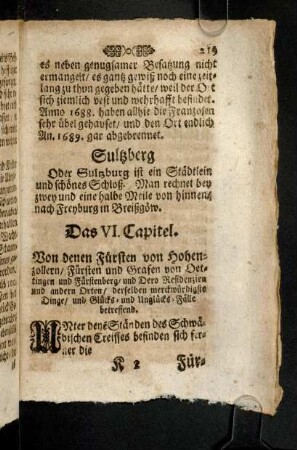 219
es neben genugsamer Besatzung nicht
ermangelt/ es gantz gewiß noch eine zeit-
lang zu thun gegeben hätte/ weil der Ort
sich ziemlich vest und wehrhafft befindet.
Anno 1688. haben allhie die Franzosen
sehr übel gehauset/ und den Ort endlich
An. 1689. gar abgebrennet.
Sultzberg
Oder Sultzburg ist ein Städtlein
und schönes Schloß. Man rechnet bey
zwey und eine halbe Meile von hinnen
nach Freyburg in Breißgöw.
Das VI. Capitel.
Von denen Fürsten von Hohen-
zollern/ Fürsten und Grafen von Oet-
tingen und Fürstenberg/ und Dero Residenzien
und andern Orten/ derselben merckwürdigste
Dinge/ und Glücks- und Unglücks-Fälle
betreffend.
UNter denē Ständen des Schwä-
bischen Creisses befinden sich fer-
ner die
K 2
Für-